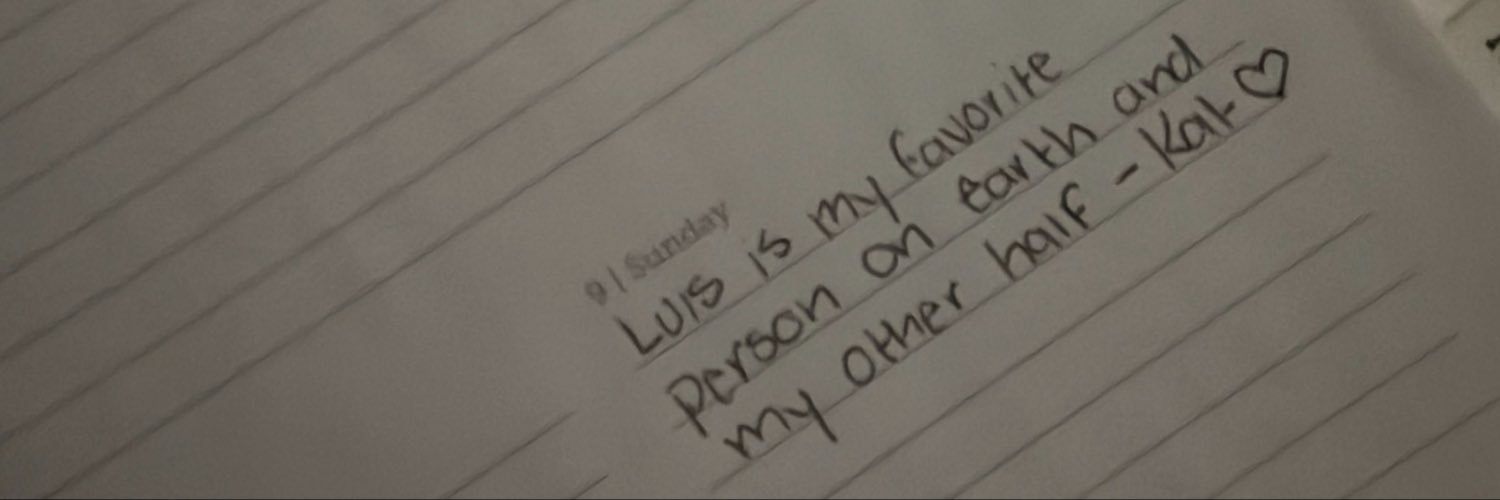 9 | Sunday
Luis is my favorite
person on earth and
my other half - Kat ♡